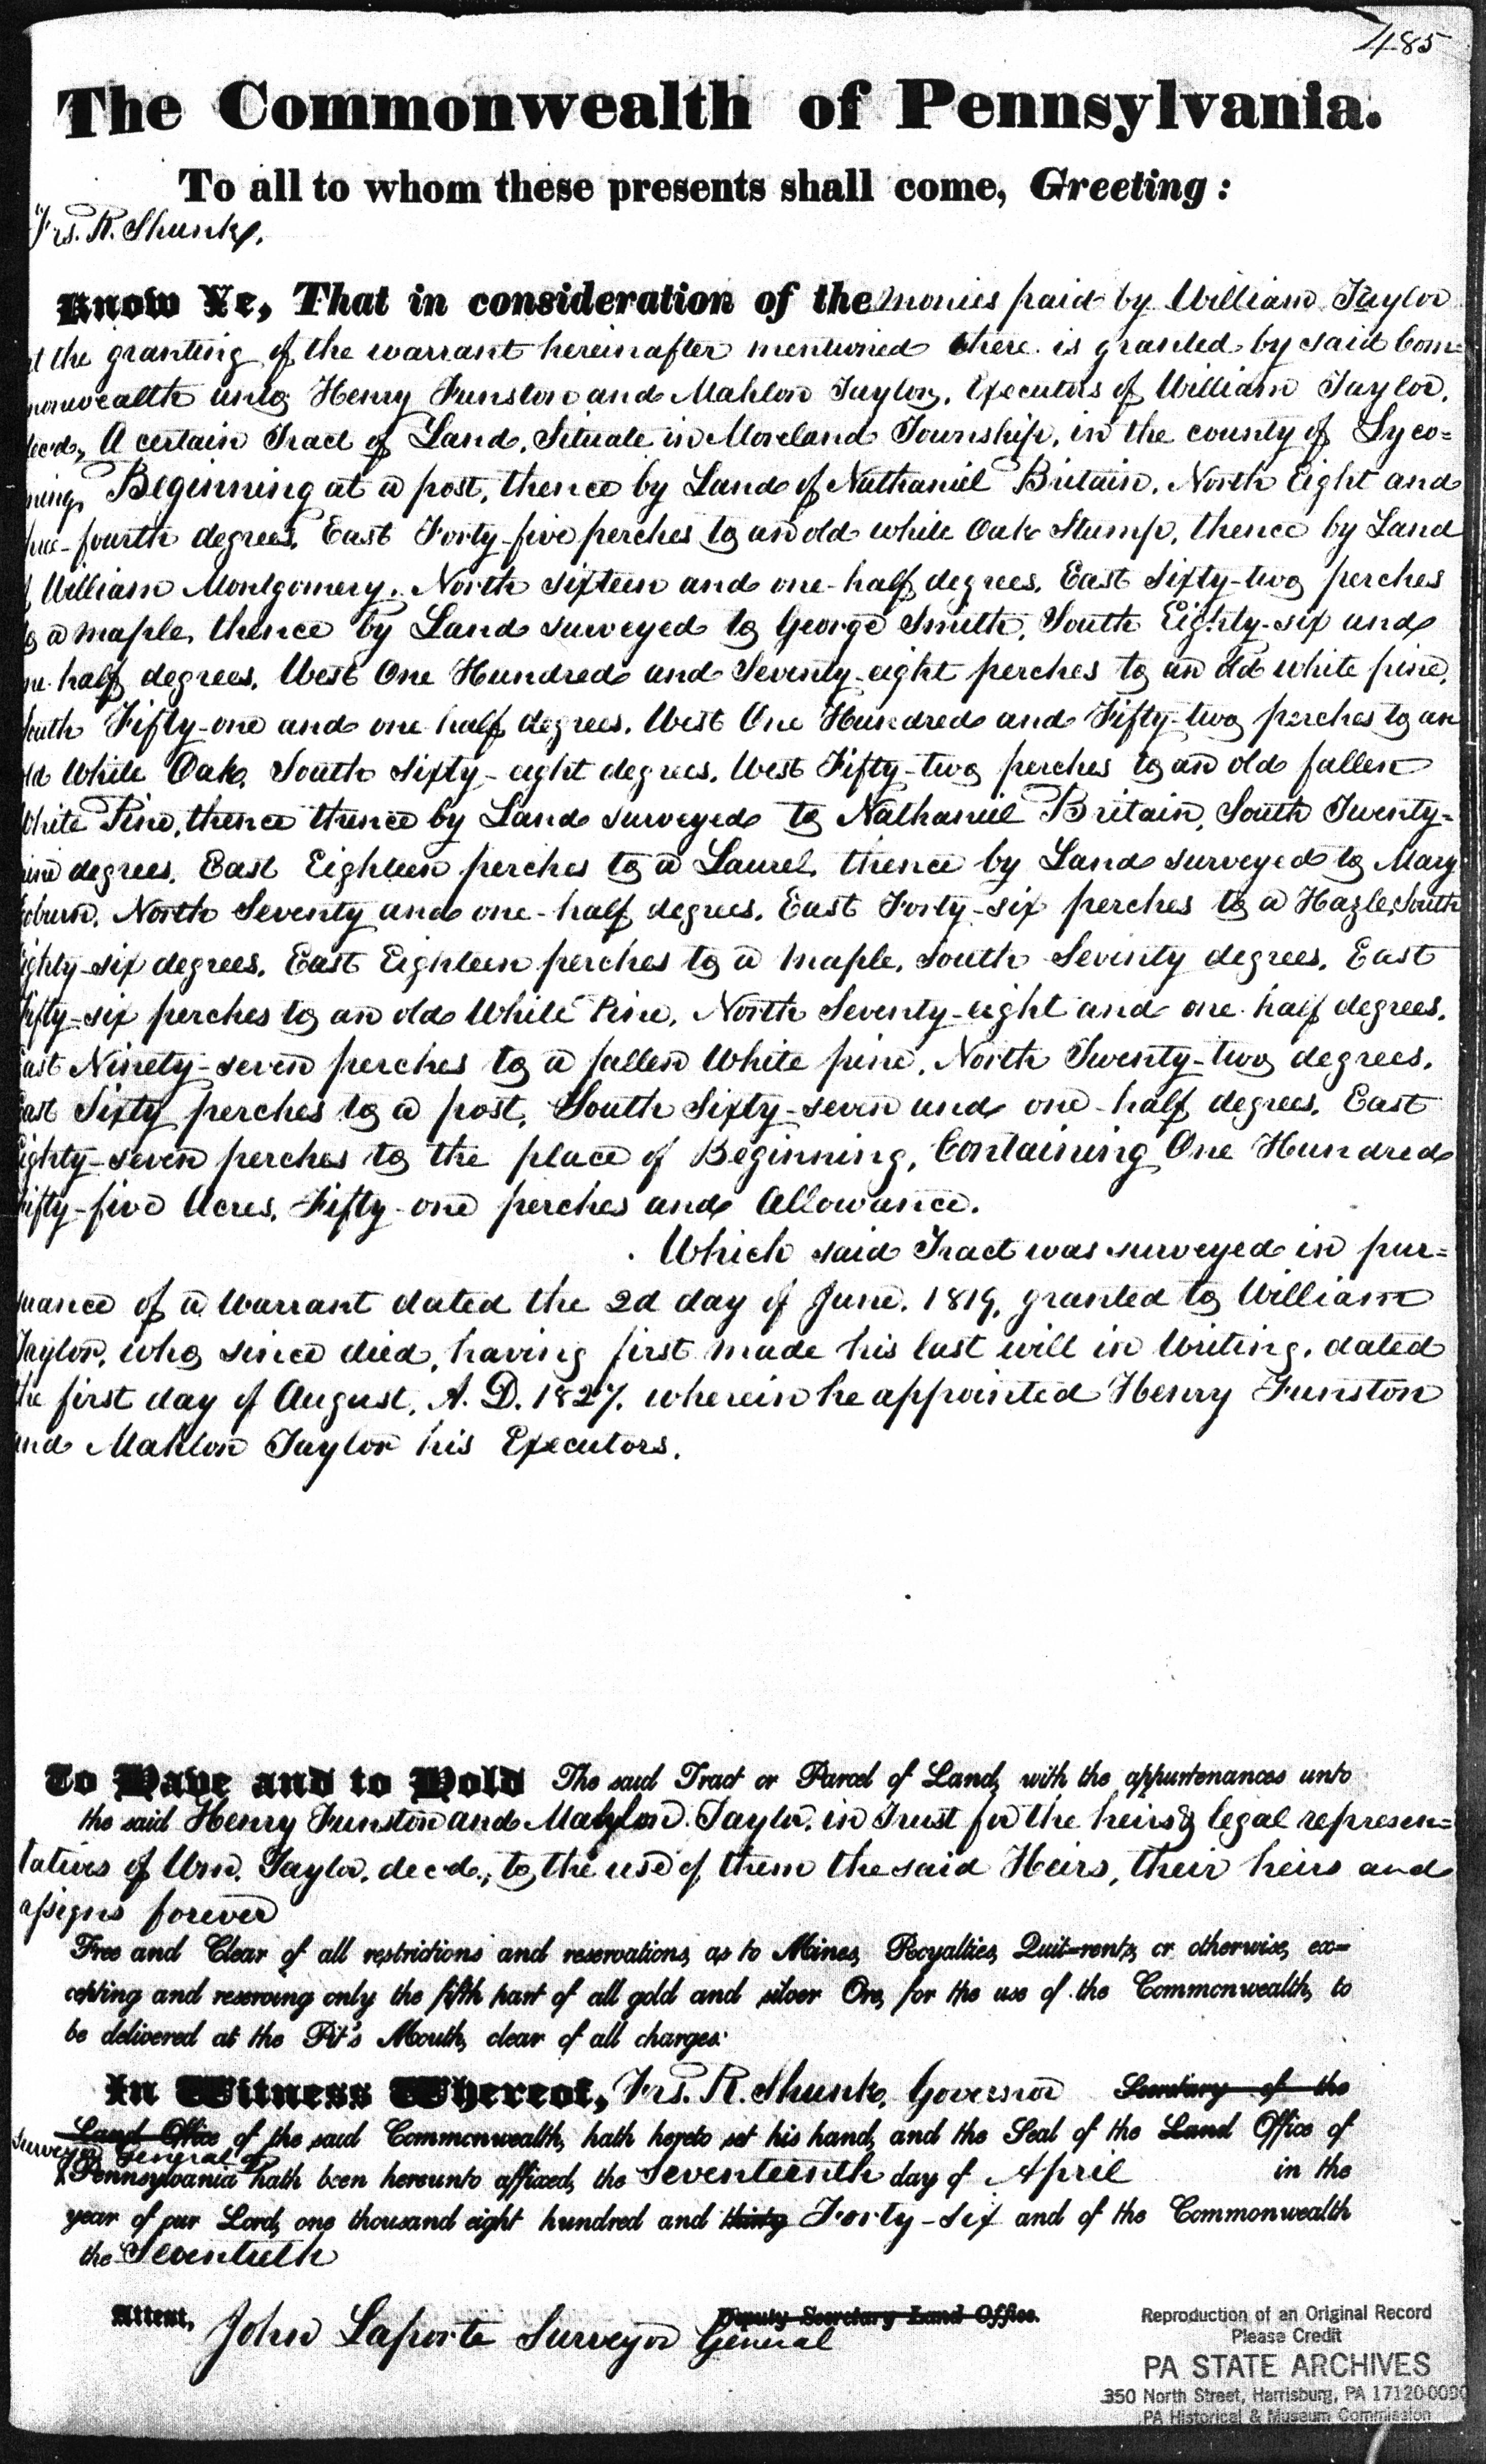 485
The Commonwealth of Pennsylvania.
To all to whom these presents shall come, Greeting:
Frs. R. Shunk.
Know Ye, That in consideration of the monies paid by William Taylor
at the granting of the warrant hereinafter mentioned there is granted by said Com=
monwealth unto Henry Funston and Mahlon Taylor, Executors of William Taylor,
decd., A certain Tract of Land, Situate in Moreland Township, in the county of Lyco=
ming, Beginning at a post, thence by Land of Nathaniel Britain, North Eight and
one-fourth degrees, East Forty-five perches to an old white Oak Stump, thence by Land
of William Montgomery, North sixteen and one-half degrees, East Sixty-two perches
to a maple, thence by Land surveyed to George Smith, South Eighty-six and
one-half degrees, West One Hundred and Seventy-eight perches to an old white pine,
South Fifty-one and one half degrees, West One Hundred and Fifty-two perches to an
old White Oak, South Sixty-eight degrees, West Fifty-two perches to an old fallen
White Pine, thence thence by Land surveyed to Nathaniel Britain, South Twenty-
nine degrees, East Eighteen perches to a Laurel, thence by Land surveyed to Mary
Coburn, North Seventy and one-half degrees, East Forty-six perches to a Hazle, South
Eighty-six degrees, East Eighteen perches to a maple, South Seventy degrees, East
Fifty-six perches to an old White Pine, North Seventy-eight and one half degrees,
East Ninety-seven perches to a fallen White pine, North Twenty-two degrees,
East Sixty perches to a post, South Sixty-seven and one-half degrees, East
Eighty-seven perches to the place of Beginning, Containing One Hundred
Fifty-five Acres, Fifty-one perches and Allowance.
Which said Tract was surveyed in pur=
suance of a Warrant dated the 2d day of June, 1819, granted to William
Taylor, who since died, having first made his last will in Writing, dated
the first day of August, A. D. 1827, wherein he appointed Henry Funston
and Mahlon Taylor his Executors.
To Have and to Hold The said Tract or Parcel of Land, with the appurtenances unto
the said Henry Funston and Mahlon Taylor, in Trust for the heirs & legal represen=
tatives of Wm. Taylor, decd., to the use of them the said Heirs, their heirs and
assigns forever
Free and Clear of all restrictions and reservations, as to Mines, Royalties, Quit=rents, or otherwise, ex=
cepting and reserving only the fifth part of all gold and silver Ore, for the use of the Commonwealth, to
be delivered at the Pit's Mouth, clear of all charges.
In Witness Whereof, Frs. R. Shunk, Governor Secretary of the
Land Office of the said Commonwealth, hath hereto set his hand, and the Seal of the Land Office of
Surveyor General of
Pennsylvania hath been hereunto affixed, the Seventeenth day of April in the
year of our Lord, one thousand eight hundred and thirty Forty-six and of the Commonwealth
the Seventieth
Attest, John Laporte Surveyor General Deputy Secretary Land Office.
Reproduction of an Original Record
Please Credit
PA STATE ARCHIVES
350 North Street, Harrisburg, PA 17120-0090
PA Historical & Museum Commission